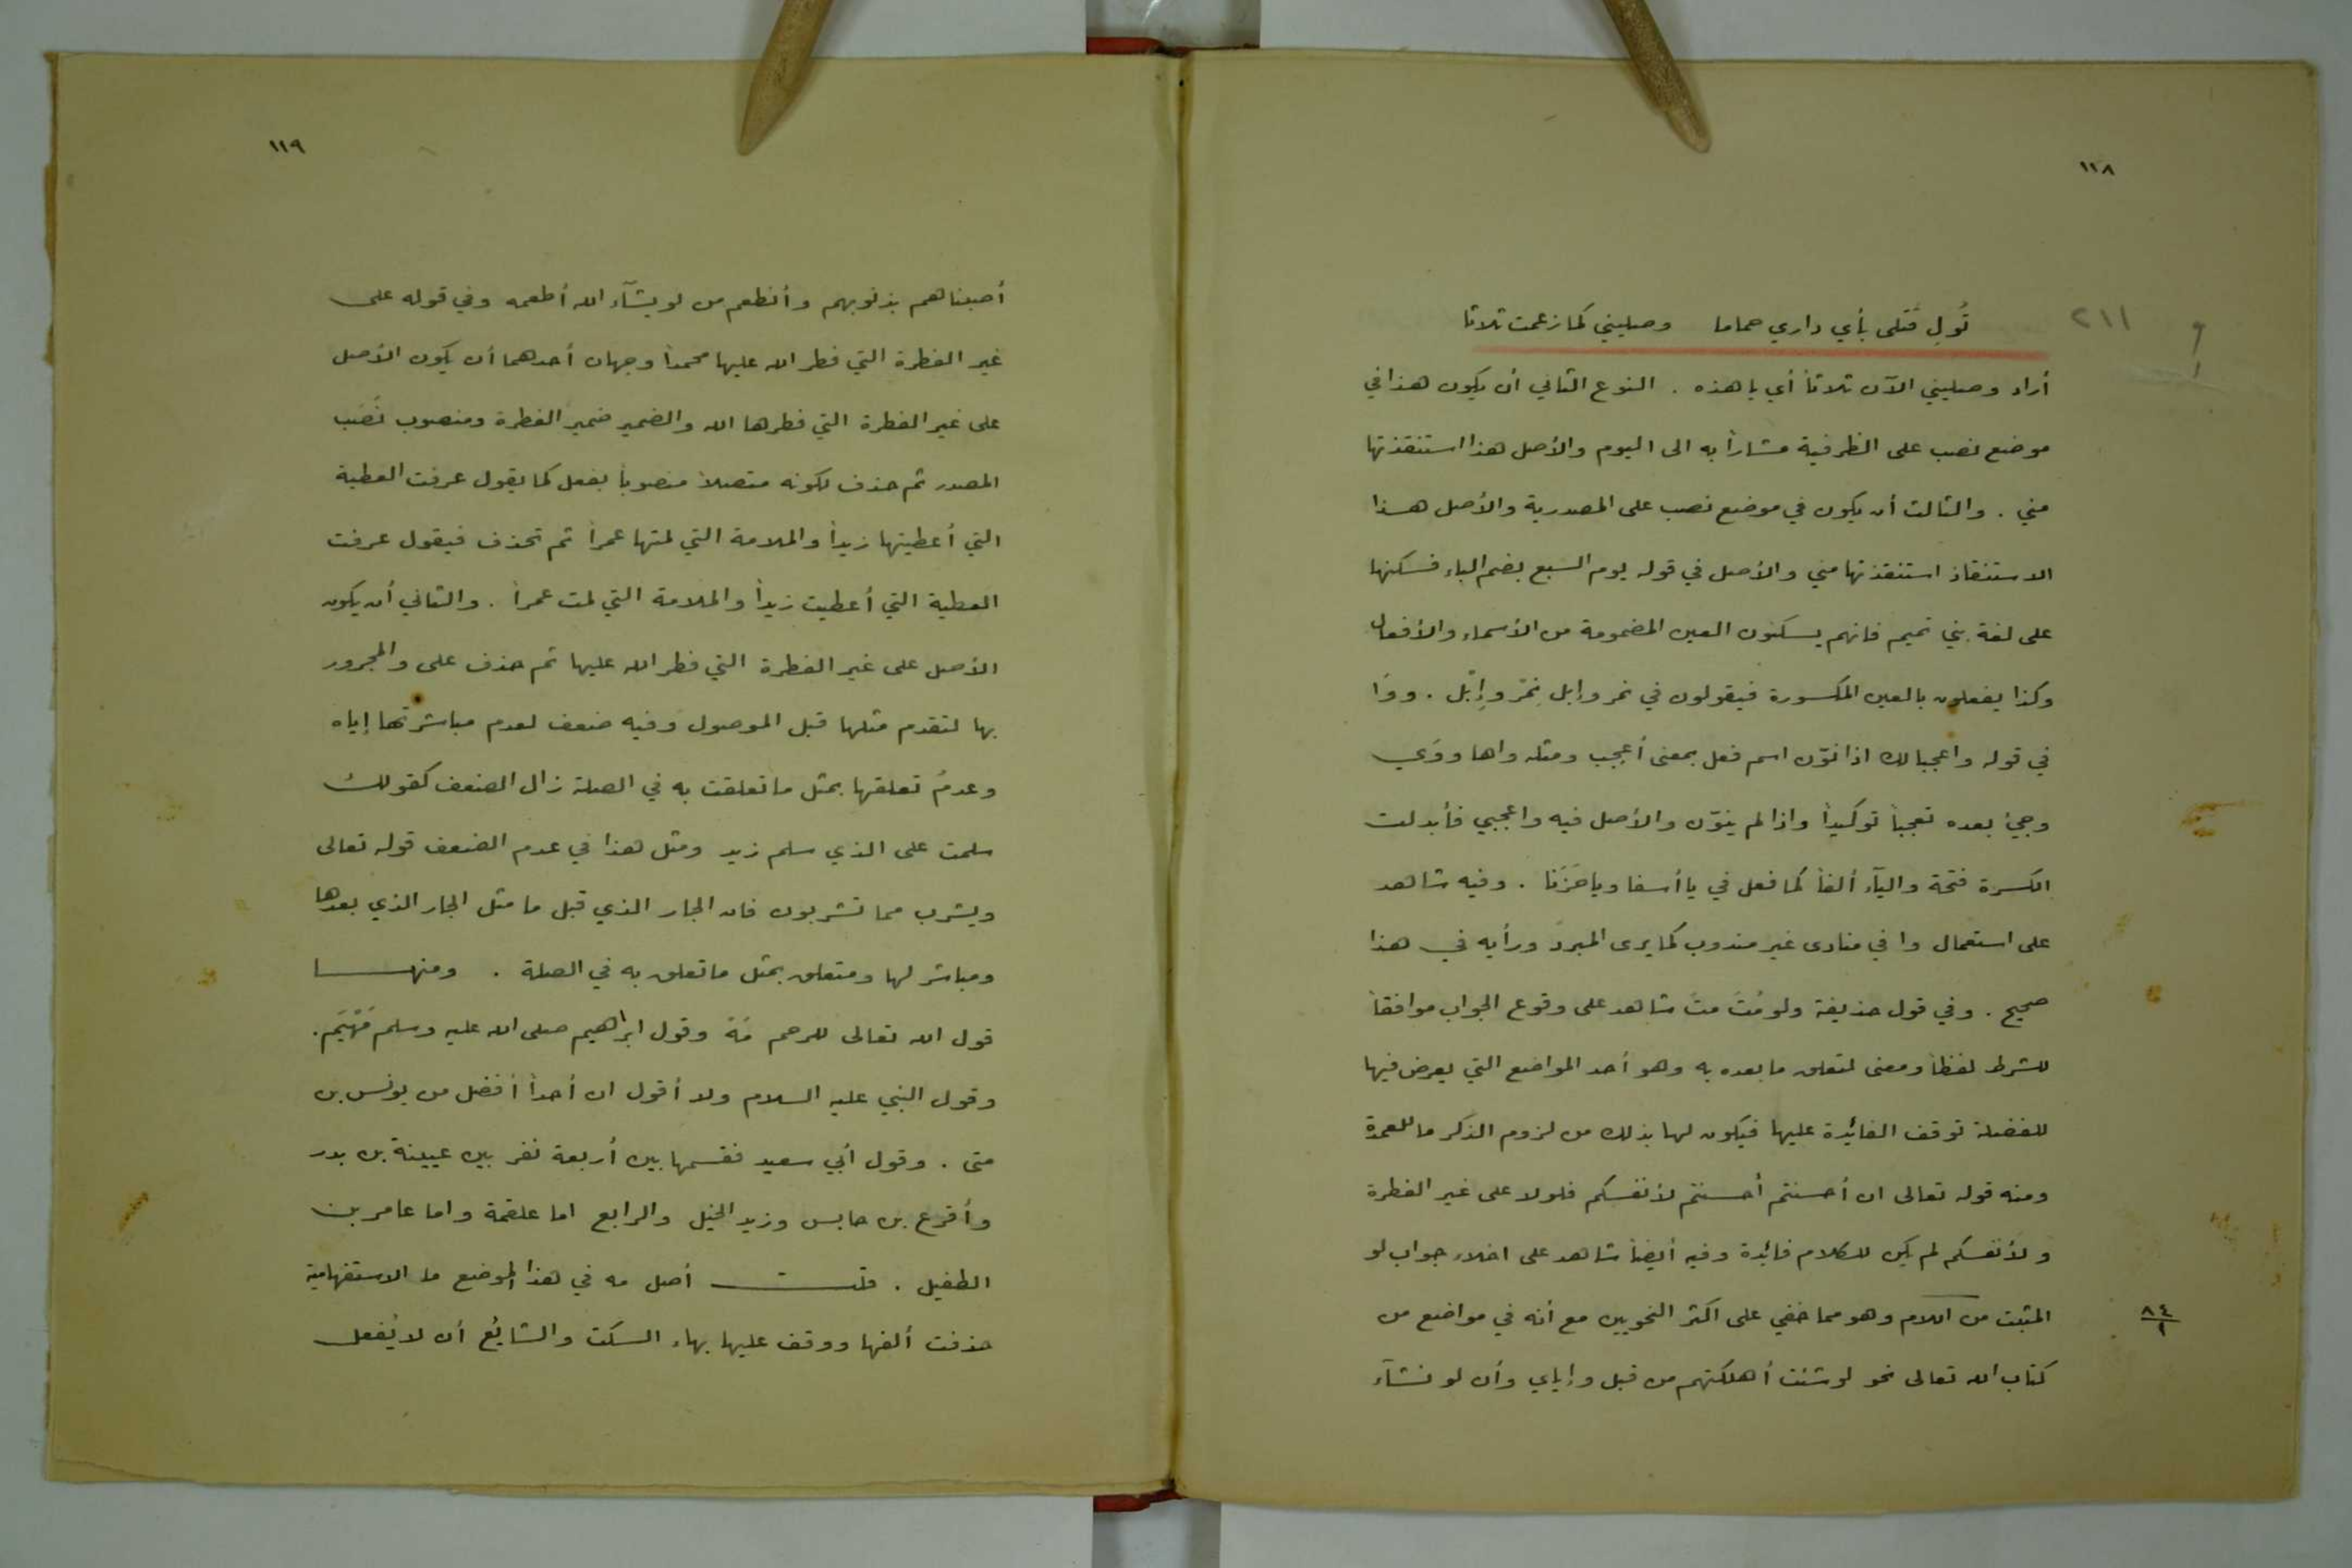 ١١٨
٢١١
تُولِ قَتلى بأي داري حماما وصليني كما زعمت تلاتا
أراد وصليني الآن تلاتاً أي يا هذه . النوع الثاني أن يكون هذا في
موضع نصب على الظرفية مشاراً به الى اليوم والأصل هذا استنقذتها
مني . والثالث أن يكون في موضع نصب على المصدرية والأصل هـذا
الاستنقاذ استنقذتها مني والأصل في قوله يوم السبع بضم الباء فسكنها
على لغة بني تميم فانهم يسكنون العين المضمومة من الأسماء والأفعال
وكذا يفعلون بالعين المكسورة فيقولون في نمر وإبل نِمْر وإِبْل . ووَا
في قوله واعجبا لك اذا نوّن اسم فعل بمعنى أعجب ومثله واها ووَي
وجيئ بعده تعجباً توكيداً واذا لم ينوّن والأصل فيه واعجبي فأبدلت
الكسرة فتحة واليآء ألفاً كما فعل في يا أسفا ويا حَزَنا . وفيه شاهد
على استعمال وا في منادى غير مندوب كما يرى المبردّ ورأيه في هذا
صحيح . وفي قول حذيفة ولو مُتّ متّ شاهد على وقوع الجواب موافقاً
للشرط لفظاً ومعنى لتعلق ما بعده به وهو أحد المواضع التي يعرض فيها
للفضلة توقف الفائدة عليها فيكون لها بذلك من لزوم الذكر ما للعمدة
ومنه قوله تعالى ان أحسنتم أحسنتم لأنفسكم فلولا على غير الفطرة
ولأنفسكم لم يكن للكلام فائدة وفيه أيضاً شاهد على اخلاء جواب لو
المثبت من اللام وهو مما خفي على اكثر النحويين مع أنه في مواضع من
٨٤
١
كتاب الله تعالى نحو لو شئت أهلكتهم من قبل وإياي وأن لو نشآء
١١٩
أصبناهم بذنوبهم وأنطعم من لو يشآء الله أطعمه وفي قوله على
غير الفطرة التي فطر الله عليها محمداً وجهان أحدهما أن يكون الأصل
على غير الفطرة التي فطرها الله والضمير ضمير الفطرة ومنصوب نَصْبَ
المصدر ثم حذف لكونه متصلاً منصوباً بفعل كما يقول عرفت العطية
التي أعطيتها زيداً والملامة التي لمتها عمراً ثم تحذف فيقول عرفت
العطية التي أعطيت زيداً والملامة التي لمت عمراً . والثاني أن يكون
الأصل على غير الفطرة التي فطر الله عليها ثم حذف على والمجرور
بها لتقدم مثلها قبل الموصول وفيه ضعف لعدم مباشرتها إياه
وعدمُ تعلقها بمثل ما تعلقت به في الصلة زال الضعف كقولك
سلمت على الذي سلم زيد ومثل هذا في عدم الضعف قوله تعالى
ويشرب مما تشربون فان الجار الذي قبل ما مثل الجار الذي بعدها
ومباشر لها ومتعلق بمثل ما تعلق به في الصلة . ومنهـــا
قول الله تعالى للرحم مَهْ وقول ابراهيم صلى الله عليه وسلم مَهْيَم.
وقول النبي عليه السلام ولا أقول ان أحداً أفضل من يونس بن
متى . وقول أبي سعيد فقسمها بين أربعة نفر بين عيينة بن بدر
وأقرع بن حابس وزيد الخيل والرابع اما علقمة واما عامر بن
الطفيل . قلـــت أصل مه في هذا الموضع ما الاستفهامية
حذفت ألفها ووقف عليها بهاء السكت والشائع أن لا يُفعل